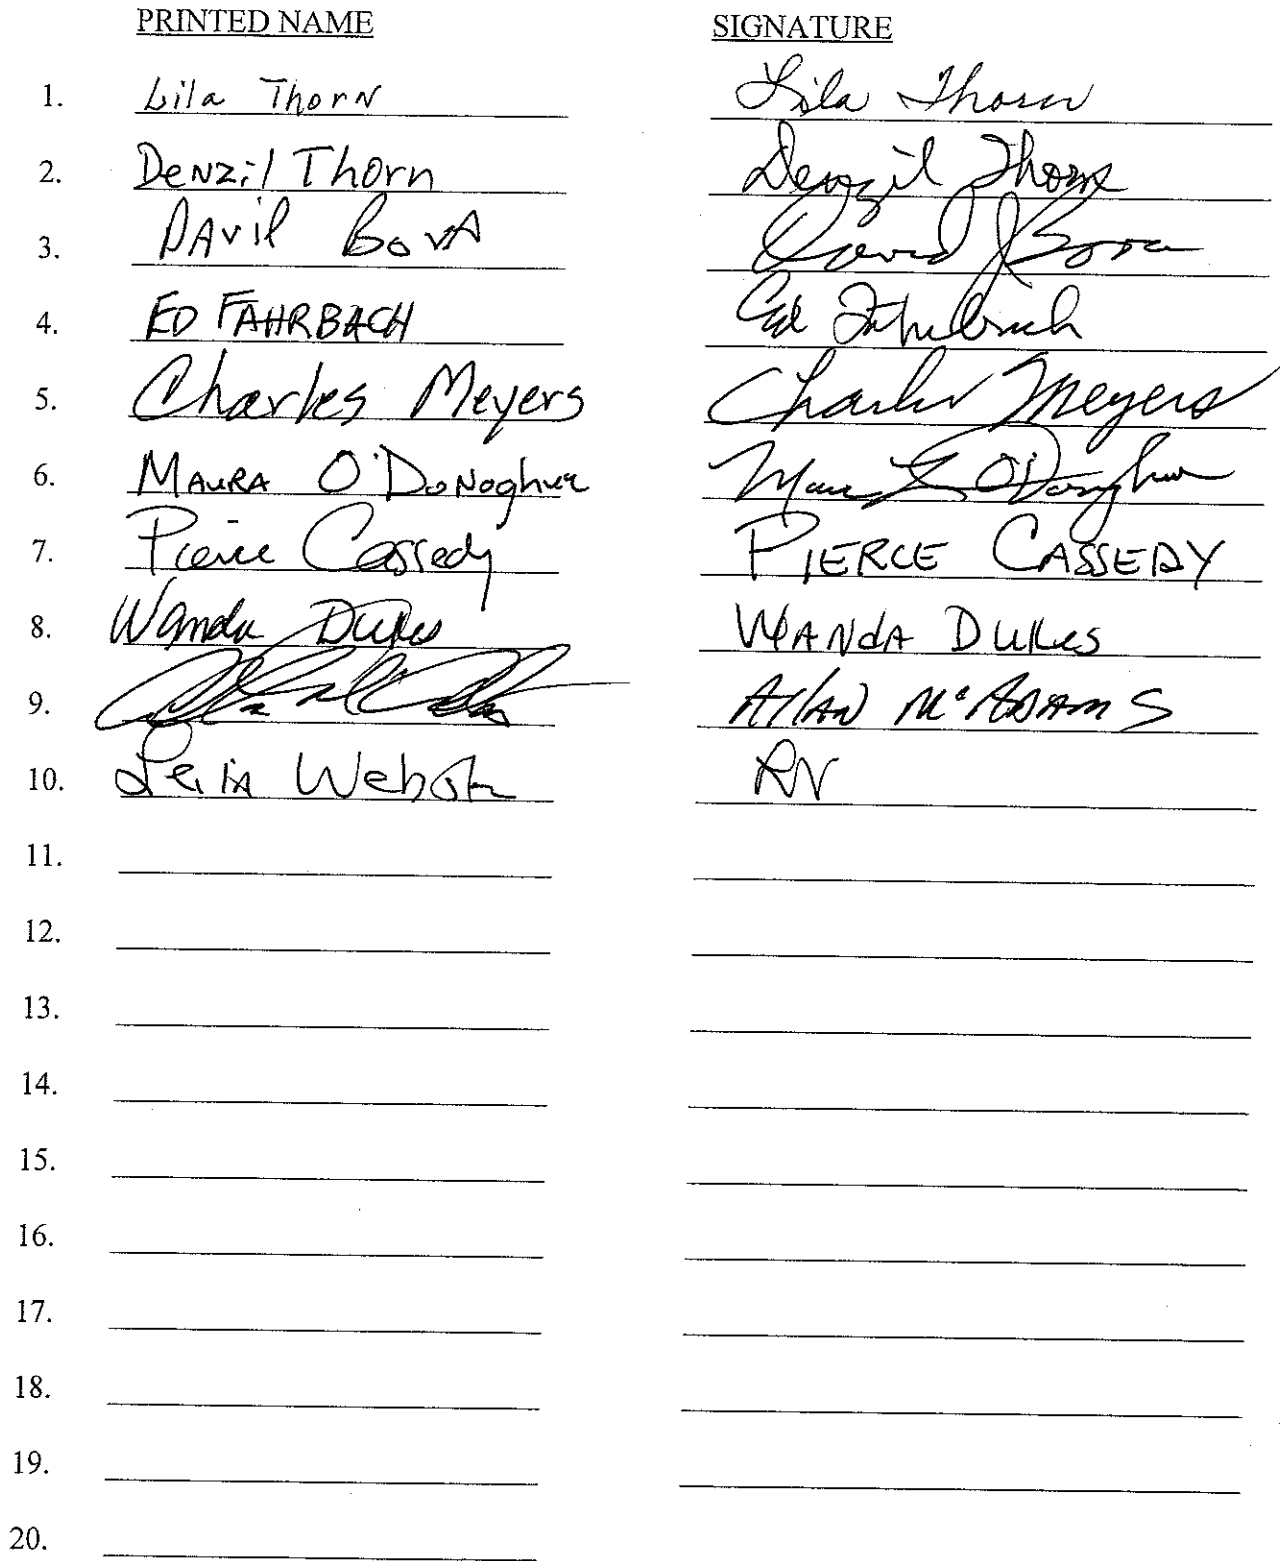 PRINTED NAME SIGNATURE
1. Lila Thorn Lila Thorn
2. Denzil Thorn Denzil Thorn
3. David Bova David J Bova
4. ED FAHRBACH Ed Fahrbach
5. Charles Meyers Charles Meyers
6. MAURA O'DoNoghue O'Donoghue
7. Pierce Cassedy PIERCE CASSEDY
8. Wanda Dukes WANdA DUkes
9. AllAN McADAMS
10. Webster RN
11.
12.
13.
14.
15.
16.
17.
18.
19.
20.